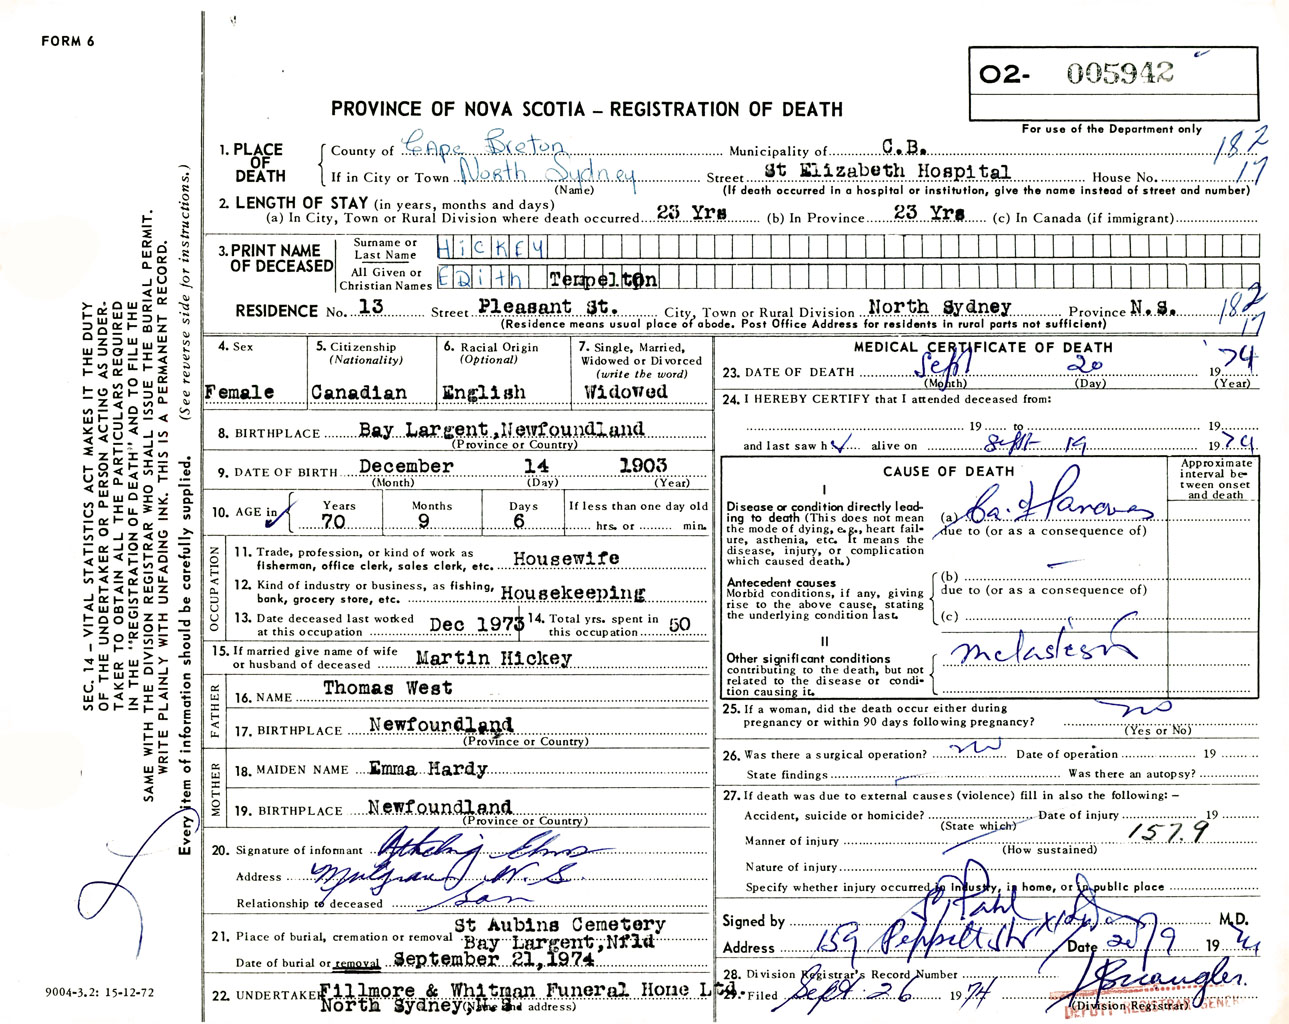 FORM 6
O2- 005942
PROVINCE OF NOVA SCOTIA – REGISTRATION OF DEATH
For use of the Department only
1. PLACE OF DEATH
County of Cape Breton Municipality of C.B. 182
If in City or Town North Sydney Street St Elizabeth Hospital House No. 17
(Name) (If death occurred in a hospital or institution, give the name instead of street and number)
2. LENGTH OF STAY (in years, months and days)
(a) In City, Town or Rural Division where death occurred 23 Yrs (b) In Province 23 Yrs (c) In Canada (if immigrant)
3. PRINT NAME OF DECEASED
Surname or Last Name HICKEY
All Given or Christian Names EDith Tempelton
RESIDENCE No. 13 Street Pleasant St. City, Town or Rural Division North Sydney Province N.S. 182
17
(Residence means usual place of abode. Post Office Address for residents in rural parts not sufficient)
4. Sex
Female
5. Citizenship
(Nationality)
Canadian
6. Racial Origin
(Optional)
English
7. Single, Married,
Widowed or Divorced
(write the word)
Widowed
8. BIRTHPLACE Bay Largent, Newfoundland
(Province or Country)
9. DATE OF BIRTH December 14 1903
(Month) (Day) (Year)
10. AGE in
Years Months Days If less than one day old
70 9 6 hrs. or min.
OCCUPATION
11. Trade, profession, or kind of work as
fisherman, office clerk, sales clerk, etc. Housewife
12. Kind of industry or business, as fishing,
bank, grocery store, etc. Housekeeping
13. Date deceased last worked
at this occupation Dec 1973
14. Total yrs. spent in
this occupation 50
15. If married give name of wife
or husband of deceased Martin Hickey
FATHER
16. NAME Thomas West
17. BIRTHPLACE Newfoundland
(Province or Country)
MOTHER
18. MAIDEN NAME Emma Hardy
19. BIRTHPLACE Newfoundland
(Province or Country)
20. Signature of informant
Address Mulgrave N.S.
Relationship to deceased Son
21. Place of burial, cremation or removal St Aubins Cemetery
Bay Largent, Nfld
Date of burial or removal September 21, 1974
22. UNDERTAKER Fillmore & Whitman Funeral Home Ltd.
North Sydney, N.S (Name and address)
MEDICAL CERTIFICATE OF DEATH
23. DATE OF DEATH Sept 20 19 74
(Month) (Day) (Year)
24. I HEREBY CERTIFY that I attended deceased from:
19 to 19
and last saw h alive on Sept 19 1974
CAUSE OF DEATH
Approximate
interval be-
tween onset
and death
I
Disease or condition directly lead-
ing to death (This does not mean
the mode of dying, e.g., heart fail-
ure, asthenia, etc. It means the
disease, injury, or complication
which caused death.)
(a) Ca. of Pancreas
due to (or as a consequence of)
Antecedent causes
Morbid conditions, if any, giving
rise to the above cause, stating
the underlying condition last.
(b)
due to (or as a consequence of)
(c)
II
Other significant conditions
contributing to the death, but not
related to the disease or condi-
tion causing it.
25. If a woman, did the death occur either during
pregnancy or within 90 days following pregnancy? no
(Yes or No)
26. Was there a surgical operation? no Date of operation 19
State findings Was there an autopsy?
27. If death was due to external causes (violence) fill in also the following: –
Accident, suicide or homicide? Date of injury 19
(State which)
Manner of injury 157.9
(How sustained)
Nature of injury
Specify whether injury occurred in Industry, in home, or in public place
Signed by M.D.
Address 159 Date 20/9 1974
28. Division Registrar's Record Number
29. Filed Sept 26 1974
(Division Registrar)
DEPUTY REGISTRAR GENERAL
SEC. 14 – VITAL STATISTICS ACT MAKES IT THE DUTY
OF THE UNDERTAKER OR PERSON ACTING AS UNDER-
TAKER TO OBTAIN ALL THE PARTICULARS REQUIRED
IN THE "REGISTRATION OF DEATH" AND TO FILE THE
SAME WITH THE DIVISION REGISTRAR WHO SHALL ISSUE THE BURIAL PERMIT.
WRITE PLAINLY WITH UNFADING INK. THIS IS A PERMANENT RECORD.
Every item of information should be carefully supplied. (See reverse side for instructions.)
9004-3.2: 15-12-72